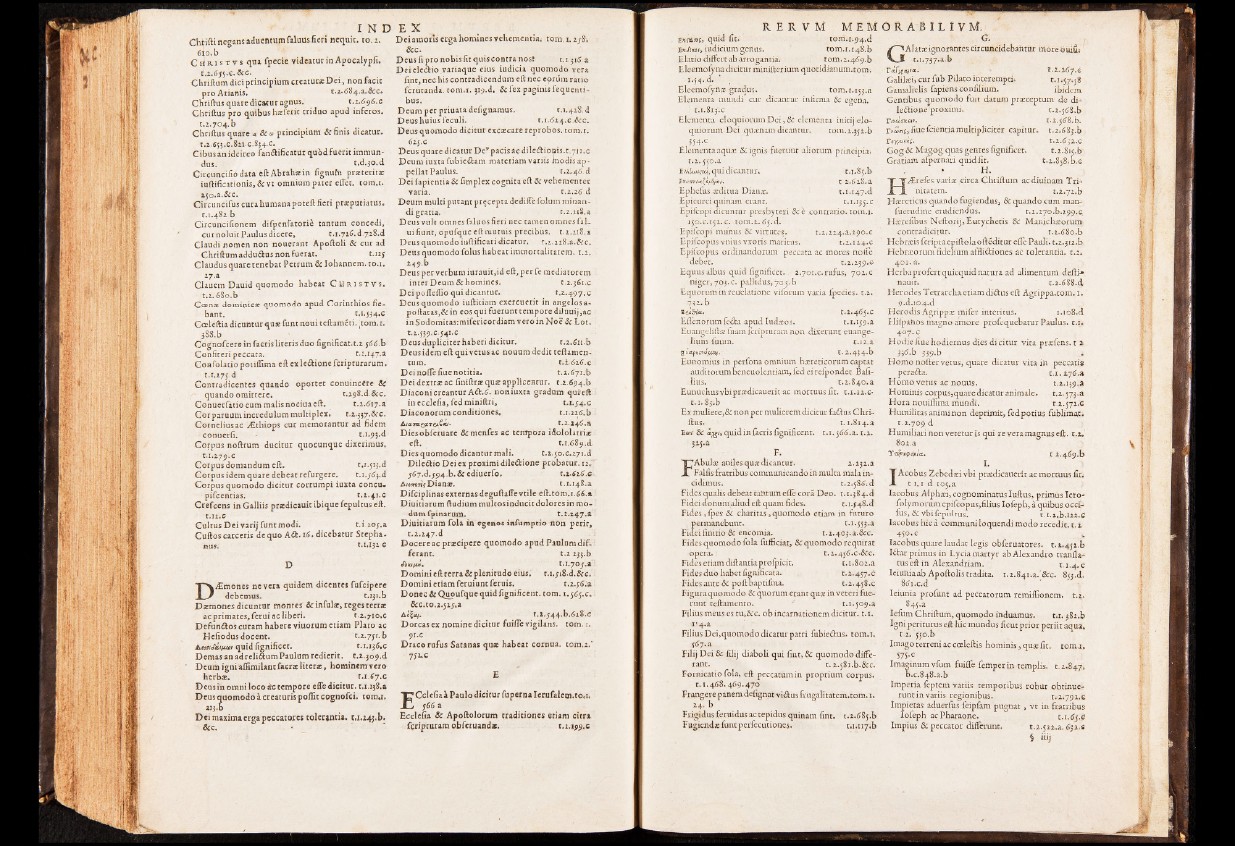 INDEX
Chriſti negans aduentum ſaluus fieri nequit. to. 2.
610.b
CHRISTVS qua ſpecie videatur in Apocalypſi.
t.2.655.c.&c.
Chriſtum dici principium creaturæ Dei, non facit
pro Arianis. t.2.684.a.&c.
Chriſtus quare dicatur agnus. t.2.696.c
Chriſtus pro quibus hæſerit triduo apud inferos.
t.2.704.b
Chriſtus quare α & ω principium & finis dicatur.
t.2.653.c.821.c.854.c.
Cibus an ideirco ſanctificatur quòd fuerit immun-
dus. t,d.30.d
Circunciſio data eſt Abrahæ in ſignum præteritæ
iuſtificationis, & vt omnium pater eſſet. tom.1.
250.a.&c.
Circunciſus cura humana poteſt fieri præputiatus.
t.1.482 b
Circunciſionem diſpenſatoriè tantum concedi,
cur noluit Paulus dicere, t.1.726.d.728.d
Claudi nomen non nouerant Apoſtoli & cur ad
Chriſtum adductus non fuerat. t.125
Claudus quare tenebat Petrum & Iohannem. to.1.
27.a
Clauem Dauid quomodo habeat CHRISTVS.
t.2.680.b
Cœnæ dominicæ quomodo apud Corinthios fie-
bant. t.1.534.c
Cœleſtia dicuntur quæ ſunt noui teſtamēti. tom.1.
388.b
Cognoſcere in ſacris literis duo ſignificat. t.2 566.b
Confiteri peccata. t.1.147.a
Conſolatio potiſſima eſt ex lectione ſcripturarum.
t.1.275 d
Contradicentes quando oportet conuincere &
quando omittere. t.298.d &c.
Conuerſatio cum malis nociua eſt. t.2.617.a
Cor paruum incredulum multiplex. t.2.337.&c.
Cornelius ac Æthiops cur memorantur ad fidem
conuerſi. t.1.93.d
Corpus noſtrum ducitur quocunque dixerimus.
t.1.279.c
Corpus domandum eſt. t,1.513.d
Corpus idem quare debeat reſurgere. t.1.563.d
Corpus quomodo dicitur corrumpi iuxta concu-
piſcentias. t.2.41.c
Creſcens in Galliis prædicauit ibique ſepultus eſt.
t.12.c
Cultus Dei varij ſunt modi. t.i 205,a
Cuſtos carceris de quo Act.16. dicebatur Stepha-
nus. t.1.132 c
D
DÆmones ne vera quidem dicentes ſuſcipere
debemus. t.231.b
Dæmones dicuntur montes & inſulæ, reges terræ
ac primates, ſerui ac liberi. t.2.710.c
Defunctos curam habere viuorum etiam Plato ac
Heſiodus docent. t.2.751.b
quid ſignificet. t.1.136,c
Demas an ad relictum Paulum redierit. t.2.309.d
Deum igni aſſimilant ſacræ literæ, hominem vero
herbæ. t.1.67.c
Deus in omni loco ac tempore eſſe dicitur. t.1.138.a
Deus quomodo à creaturis poſſit cognoſci. tom.1.
213.b
Dei maxima erga peccatores tolerantia. t.1.243.b.
&c.
Dei amoris erga homines vehementia. tom 1.278.
&c.
Deus ſi pro nobis ſit quis contra nos? t.1 316 a
Dei electio variaque eius iudicia quomodo vera
ſint, nec his contradicendum eſt nec eorum ratio
ſcrutanda. tom.1. 329.d. & ſex paginis ſequenti-
bus.
Deum per priuata deſignamus. t.1.428.d
Deus huius ſeculi. t.1.624.c.&c.
Deus quomodo dicitur excæcare reprobos. tom.1.
625.c
Deus quare dicatur Deꝰ pacis ac dilectionis. t.712.c
Deum iuxta ſubiectam materiam variis modis ap-
pellat Paulus. t.2.46.d
Dei ſapientia & ſimplex cognita eſt & vehementer
varia. t.2.26 d
Deum multi putant præcepta dediſſe ſolum miuan-
di gratia. t.2.218,a
Deus vult omnes ſaluos fieri nec tamen omnes ſal-
ui fiunt, opuſque eſt noſtris precibus. t.2.218.a
Deus quomodo iuſtificari dicatur. t.2.228.a.&c.
Deus quomodo ſolus habeat immortalitatem. t.2.
249.b
Deus per verbum iurauit, id eſt, per ſe mediatorem
inter Deum & homines. t.2.361.c
Dei poſſeſſio qui dicantur. t.2.497.c
Deus quomodo iuſticiam exercuerit in angelos a-
poſtatas, & in eos qui fuerunt tempore diluuij, ac
in Sodomitas: miſericordiam vero in Noë & Lot.
t.2.539.c.541.c
Deus dupliciter haberi dicitur. t.2.611.b
Deus idem eſt qui vetus ac nouum dedit teſtamen-
tum. t.1.626.c
Dei noſſe ſiue notitia. t.2.671.b
Dei dextræ ac ſiniſtræ quæ applicentur. t.2.694.b
Diaconi creantur Act.6. non iuxta gradum qui eſt
in eccleſia, ſed miniſtri, t.1.54.c
Diaconorum conditiones. t.1.226.b
t.2.246.a
Dies obſeruare & menſes ac tempora idololatriæ
eſt. t.1.689.d
Dies quomodo dicantur mali. t.2.50.c.271.d
Dilectio Dei ex proximi dilectione probatur. t.1.
567.d.594.b.& ediuerſo. t.2.626.c
Dianæ. t.1.148.a
Diſciplinas externas deguſtaſſe vtile eſt. tom.1.66.a
Diuitiarum ſtudium multos inducit dolores in mo-
dum ſpinarum. t.2.247.a
Diuitiarum ſola in egenos inſumptio non perit,
t.2.247.d
Docere ac præcipere quomodo apud Paulum dif-
ferant. t.2 233.b
t.1.705.a
Domini eſt terra & plenitudo eius. t.1.518.d.&c.
Domini etiam ſeruiunt ſeruis. t.2.56.a
Donec & Quouſque quid ſignificent. tom.1.565.c.
&c.to.2.525.a
t.2.544.b.618.c
Dorcas ex nomine dicitur fuiſſe vigilans. tom.1.
91.c
Draco rufus Satanas quæ habeat cornua. tom.2.
752.c
E
ECcleſia à Paulo dicitur ſuperna Ieruſalem. to.1.
566 a
Eccleſia & Apoſtolorum traditiones etiam citra
ſcripturam obſeruandæ. t.1.199.c
RERVM MEMORABILIVM.
quid ſit. tom.1.94.d
iudicium genus. tom.1.148.b
Elatio differt ab arrogantia. tom.2.469.b
Eleemoſyna dicitur miniſterium quotidianum. tom.
1.54.d.
Eleemoſynæ gradus. tom.1.153.a
Elementa mundi cur dicantur infirma & egena,
t.1.813.c
Elementa eloquiorum Dei, & elementa initij elo-
quiorum Dei quænam dicantur. tom.2.352.b
354.c
Elementa aquæ & ignis fuerunt aliorum principia.
t.2.550.a
qui dicantur. t.1.85.b
t.2.628.a
Epheſus æditua Dianæ. t.1.147.d
Epicurei quinam erant. t.1.135.c
Epiſcopi dicuntur presbyteri & è contrario. tom.1.
150.c.152.c. tom.2.65.d.
Epiſcopi munus & virtutes. t.2.224.a.290.c
Epiſcopus vnius vxoris maritus. t.2.224.c
Epiſcopus ordinandorum peccata ac mores noſſe
debet. t.2.239.c
Equus albus quid ſignificet. 2.701.c. rufus, 702.c
niger, 703.c. pallidus, 705.b
Equorum in reuelatione viſorum varia ſpecies. t.2.
732.b
t.2.465.c
Eſſenorum ſecta apud Iudæos. t.1.159.a
Euangeliſtæ ſuam ſcripturam non dixerunt euange-
lium ſuum. t.12.a
t.2.454.b
Eunomius in perſona omnium hæreticorum captat
auditorum beneuolentiam, ſed ei reſpondet Baſi-
lius. t.2.840.a
Eunuchus vbi prædicauerit ac mortuus ſit. t.1.12.c.
t.1.85.b
Ex muliere, & non per mulierem dicitur factus Chri-
ſtus. t.1.814.a
quid in ſacris ſignificent. t.1.566.a. t.2.
525.a
F.
FAbulæ aniles quæ dicantur. 2.232.a
Falſis fratribus communicando in multa mala in-
cidimus. t.2.586.d
Fides qualis debeat tantum eſſe corā Deo. t.1.384.d
Fidei donum aliud eſt quam fides. t.1.548.d
Fides, ſpes & charitas, quomodo etiam in futuro
permanebunt. t.1.553.a
Fidei finitio & encomia. t.2.403.a.&c.
Fides quomodo ſola ſufficiat, & quomodo requirat
opera. t.2.456.c.&c.
Fides etiam diſtantia proſpicit. t.1.802.a
Fides duo habet ſignificata. t.2.457.c
Fides ante & poſt baptiſma. t.2.458.c
Figura quomodo & quorum erant quæ in veteri fue-
runt teſtamento. t.1.509.a
Filius meus es tu, &c. ob incarnationem dicitur. t.1.
114.a
Filius Dei, quomodo dicatur patri ſubiectus. tom.1.
567.a
Filij Dei & filij diaboli qui ſint, & quomodo diffe-
rant. t.2.581.b.&c.
Fornicatio ſola, eſt peccatum in proprium corpus.
t.1.468.469.470
Frangere panem deſignat victus frugalitatem. tom.1.
24.b
Frigidus feruidus ac tepidus quinam ſint. t.2.685.b
Fugiendæ ſunt perſecutiones. t.1.117.b
G.
GAlatæ ignorantes circuncidebantur more ouiū.
t.1.757.a.b
t.2.267.c
Galilæi, cur ſub Pilato interempti. t.1.57.58
Gamalielis ſapiens conſilium. ibidem
Gentibus quomodo fort datum præceptum de di-
lectione proximi. t.2.568.b
t.2.568.b.
ſiue ſcientia multipliciter capitur. t.2.683.b
t.2.632.c
Gog & Magog quas gentes ſignificet. t.2.815.b
Gratiam aſpernari quid ſit. t.2.858.b.c
H.
HÆreſes variæ circa Chriſtum ac diuinam Tri-
nitatem. t.2.72.b
Hæreticus quando fugiendus, & quando cum man-
ſuetudine erudiendus. t.2.270.b.299.c
Hæreſibus Neſtorij, Eutychetis & Manichæorum
contradicitur. t.2.680.b
Hebræis ſcripta epiſtola oſtēditur eſſe Pauli. t.2.312.b
Hebræorum fidelium afflictiones ac tolerantia. t.2.
402.a.
Herba profert quicquid natura ad alimentum deſti-
nauit. t.2.688.d
Herodes Tetrarcha etiam dictus eſt Agrippa. tom.1.
9.d.104.d
Herodis Agrippæ miſer interitus. 1.108.d
Hiſpanos magno amore proſequebatur Paulus. t.1,
407.c
Hodie ſiue hodiernus dies dicitur vita præſens. t 2
336.b 339.b
Homo noſter vetus, quare dicatur vita in peccatis
peracta. t.1.276.a
Homo vetus ac nouus. t.2.139.a
Hominis corpus, quare dicatur animale. t.2.573.a
Hora nouiſſima mundi. t.2.572.c
Humilitas animi non deprimit, ſed potius ſublimat.
t.2.709 d
Humiliari non veretur is qui re vera magnus eſt. t.2.
802.a
t 2.469.b
I.
IAcobus Zebedæi vbi prædicauerit ac mortuus ſit.
t 1,1 d 105,a
Iacobus Alphæi, cognominatus Iuſtus, primus Iero-
ſolymorum epiſcopus, filius Ioſeph, à quibus occi-
ſus, & vbi ſepultus. t 1.2.b.122.c
Iacobus hic à communi loquendi modo recedit. t.2
450.c
Iacobus quare laudat legis obſeruatores. t.2.452.b
Ictar primus in Lycia martyr ab Alexandro tranſla-
tus eſt in Alexandriam. t.2.4.c
Ieiunia ab Apoſtolis tradita. t.2.841.a. &c. 853.d.
861.c.d
Ieiunia proſunt ad peccatorum remiſſionem. t.2.
845.a
Ieſum Chriſtum, quomodo induamus. t.1.381.b
Igni periturus eſt hic mundus ſicut prior periit aqua.
t.2. 550.b
Imago terreni ac cœleſtis hominis, quæ ſit. tom.1.
575.c
Imaginum vſum fuiſſe ſemper in templis. t.2.847.
b.c.848.a.b
Imperia ſeptem variis temporibus robur obtinue-
runt in variis regionibus. t.2.792.c
Impietas aduerſus ſeipſam pugnat, vt in fratribus
Ioſeph ac Pharaone. t.1.65.c
Impius & peccator differunt. t.2.522.a.632.c
§ iiij